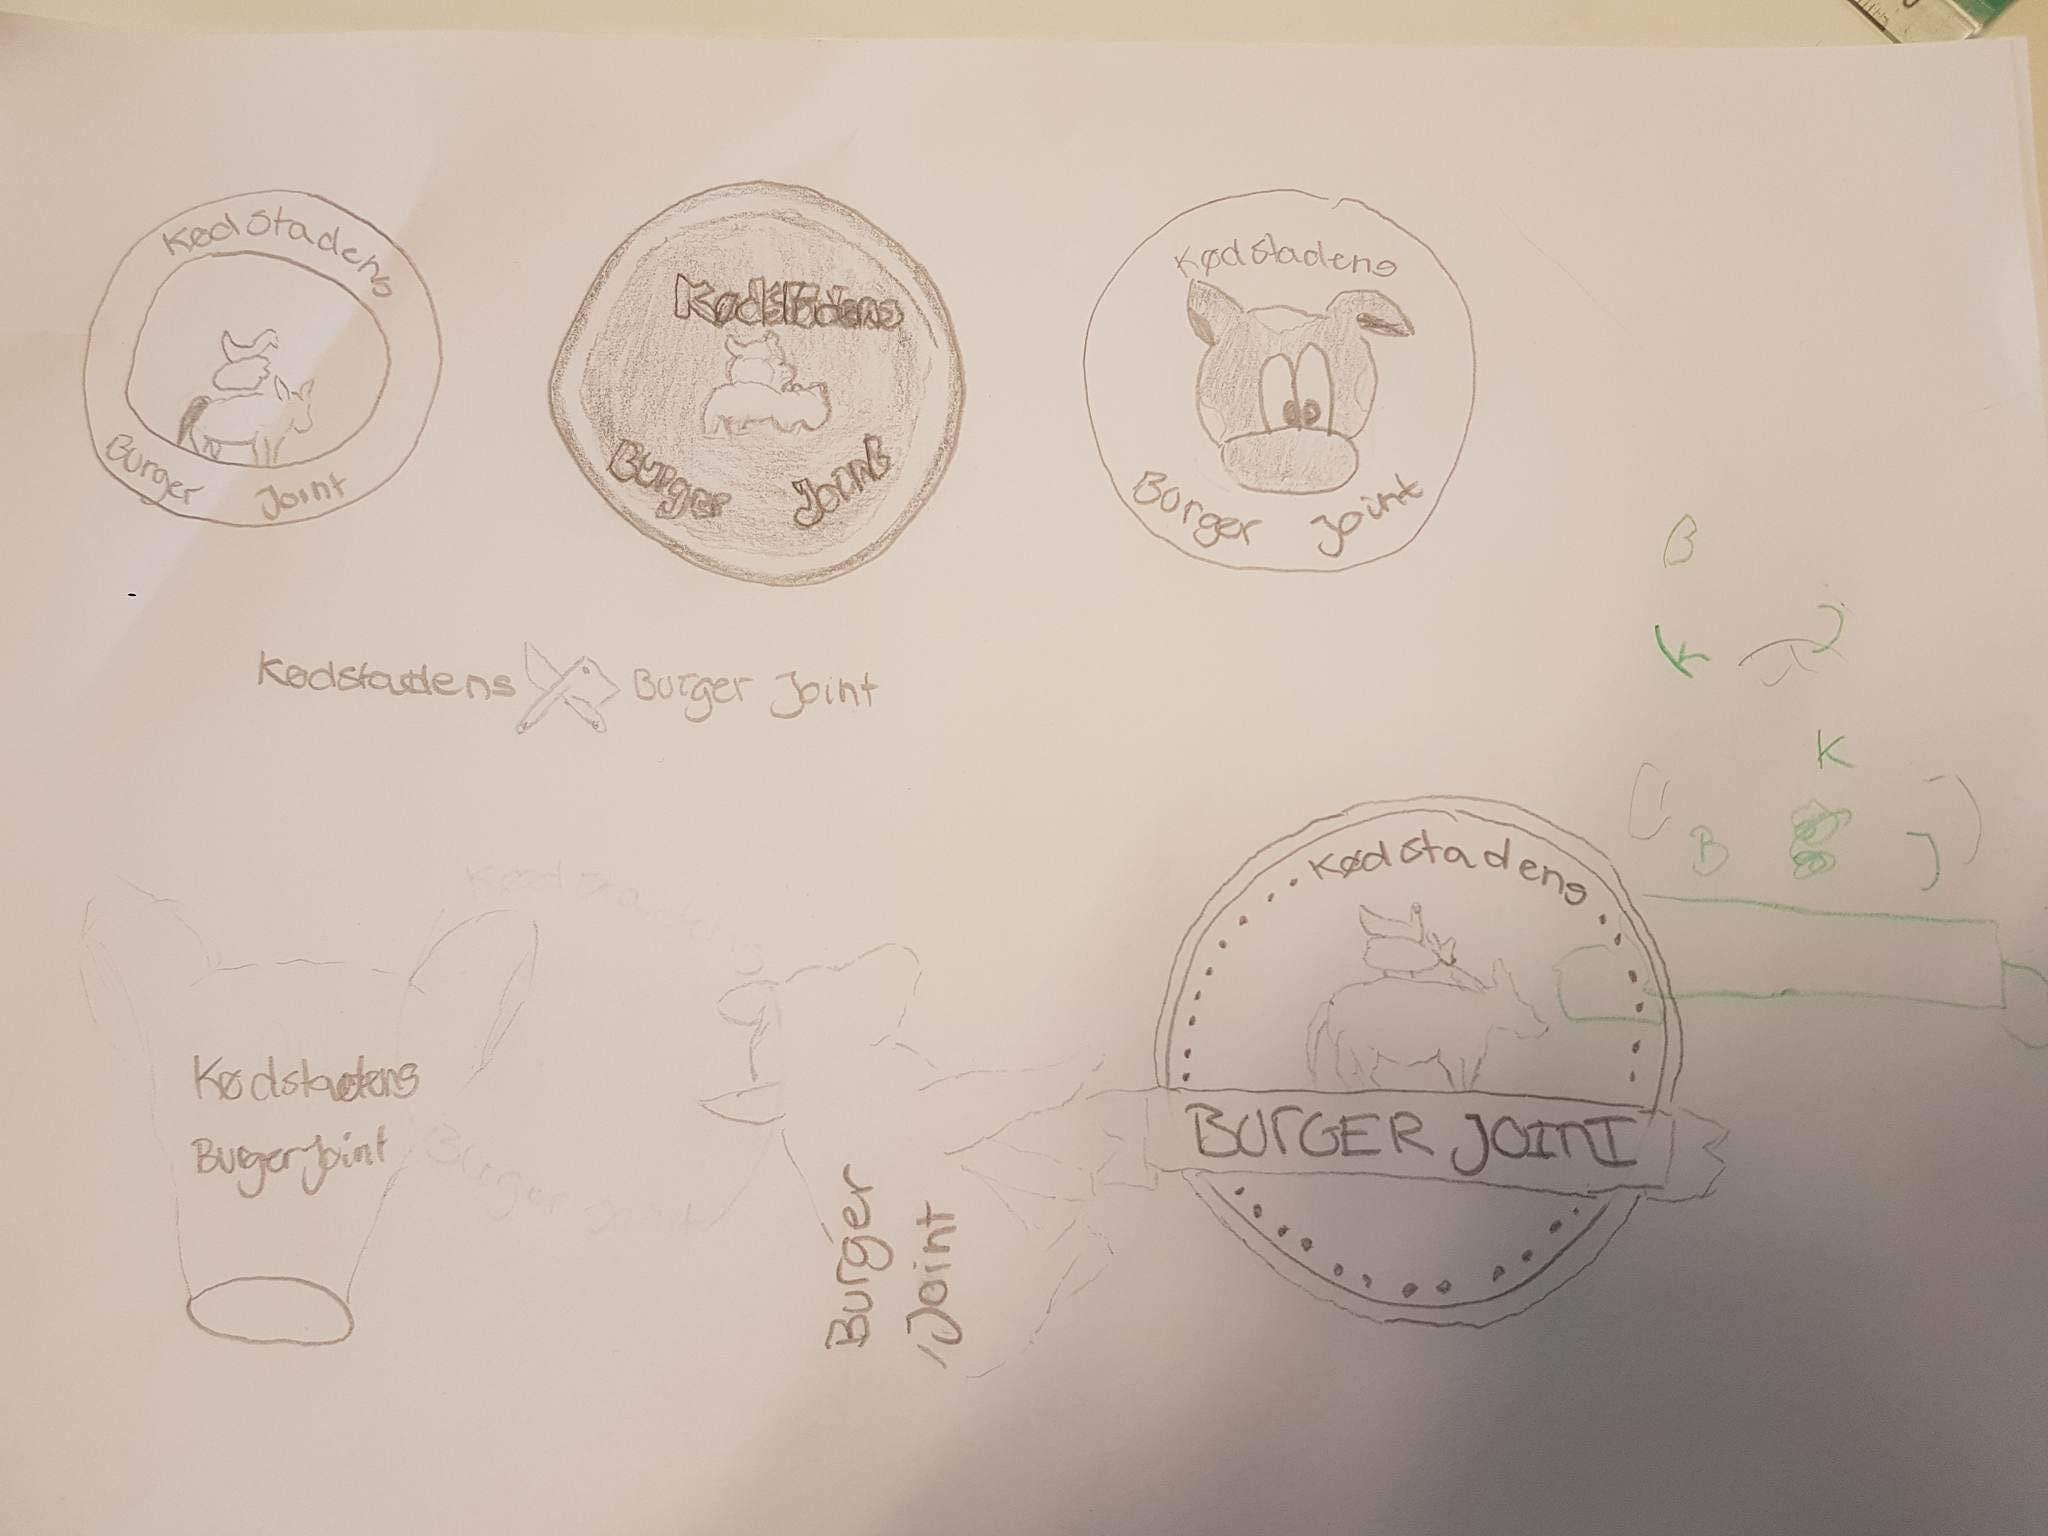 Kødstadens
Burger Joint
Kødstadens
Burger Joint
Kødstadens
Burger Joint
Kødstadens Burger Joint
B
K J
K
B J
Kødstadens
Burger Joint
Kødstadens
Burger Joint
Burger
Joint
Kødstadens
BURGER JOINT